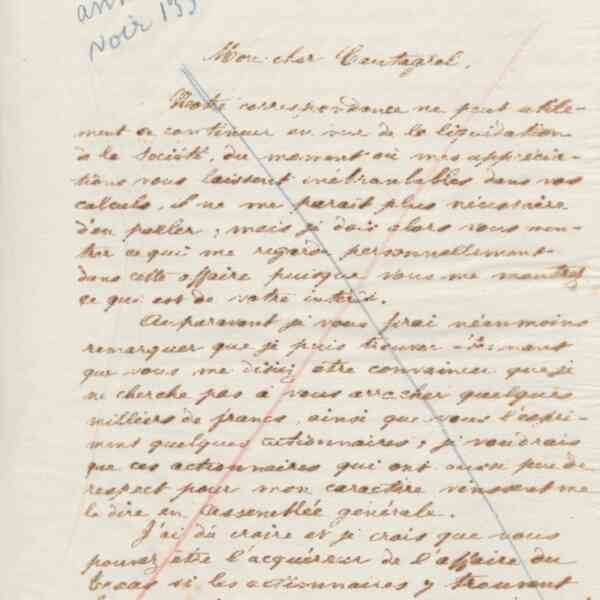 voir 133
Mon cher Cantagrel,
Notre correspondance ne peut utile-
ment se continuer en vue de la liquidation
de la Société, du moment où mes apprécia-
tions vous laissent inébranlables dans vos
calculs, il ne me parait plus nécessaire
d'en parler; mais je dois alors vous mon-
trer ce qui me regarde personnellement
dans cette affaire puisque vous me montrez
ce qui est de votre intérêt.
Auparavant je vous ferai néanmoins
remarquer que je puis trouver étonnant
que vous me disiez être convaincu que je
ne cherche pas à vous arracher quelques
milliers de francs, ainsi que vous l'expri-
ment quelques actionnaires; je voudrais
que ces actionnaires qui ont aussi peu de
respect pour mon caractère vinssent me
le dire en Assemblée générale.
J'ai dû croire et je crois que vous
pouvez être l'acquéreur de l'affaire du
Texas si les actionnaires y trouvent